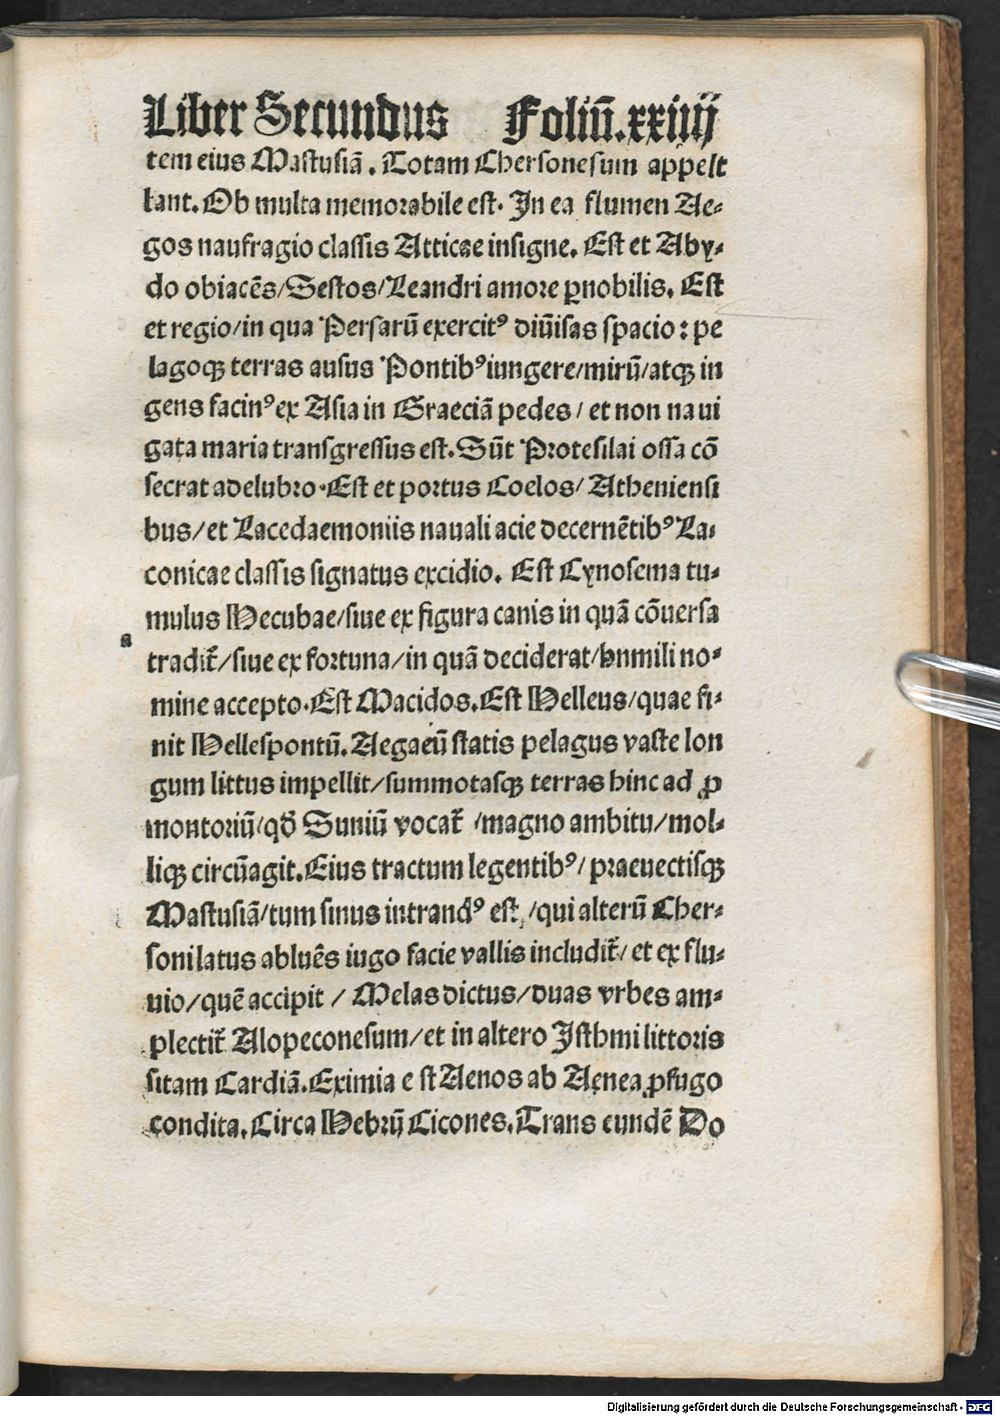 Liber Secundus Foliū.xxiiij
tem eius Mastusiā. Totam Chersonesum appelt
lant. Ob multa memorabile est. In ea flumen Ae-
gos naufragio classis Atticae insigne. Est et Aby-
do obiacēs/Sestos/Leandri amore ꝑnobilis. Est
et regio/in qua Persarū exercitꝰ diūisas spacio: pe
lagoqꝫ terras ausus Pontibꝰiungere/mirū/atqꝫ in
gens facinꝰex Asia in Graeciā pedes/et non naui
gata maria transgressus est. Sūt Protesilai ossa cō
secrat adelubro. Est et portus Coelos/Atheniensi
bus/et Lacedaemoniis nauali acie decernētibꝰLa-
conicae classis signatus excidio. Est Cynosema tu-
mulus Hecubae/siue ex figura canis in quā cōuersa
tradit̃/siue ex fortuna/in quā deciderat/hnmili no-
mine accepto. Est Macidos. Est Helleus/quae fi-
nit Hellespontū. Aegaeū statis pelagus vaste lon
gum littus impellit/summotasqꝫ terras hinc ad ꝓ
montoriū/qđ Suniū vocat̃/magno ambitu/mol-
liqꝫ circūagit. Eius tractum legentibꝰ/praeuectisqꝫ
Mastusiā/tum sinus intrandꝰ est/qui alterū Cher-
soni latus abluēs iugo facie vallis includit̃/et ex flu-
uio/quē accipit/Melas dictus/duas vrbes am-
plectit̃ Alopeconesum/et in altero Isthmi littoris
sitam Cardiā. Eximia e st Aenos ab Aenea ꝓfugo
condita. Circa Hebrū Cicones. Trans eundē Do
a
Digitalisierung gefördert durch die Deutsche Forschungsgemeinschaft - DFG